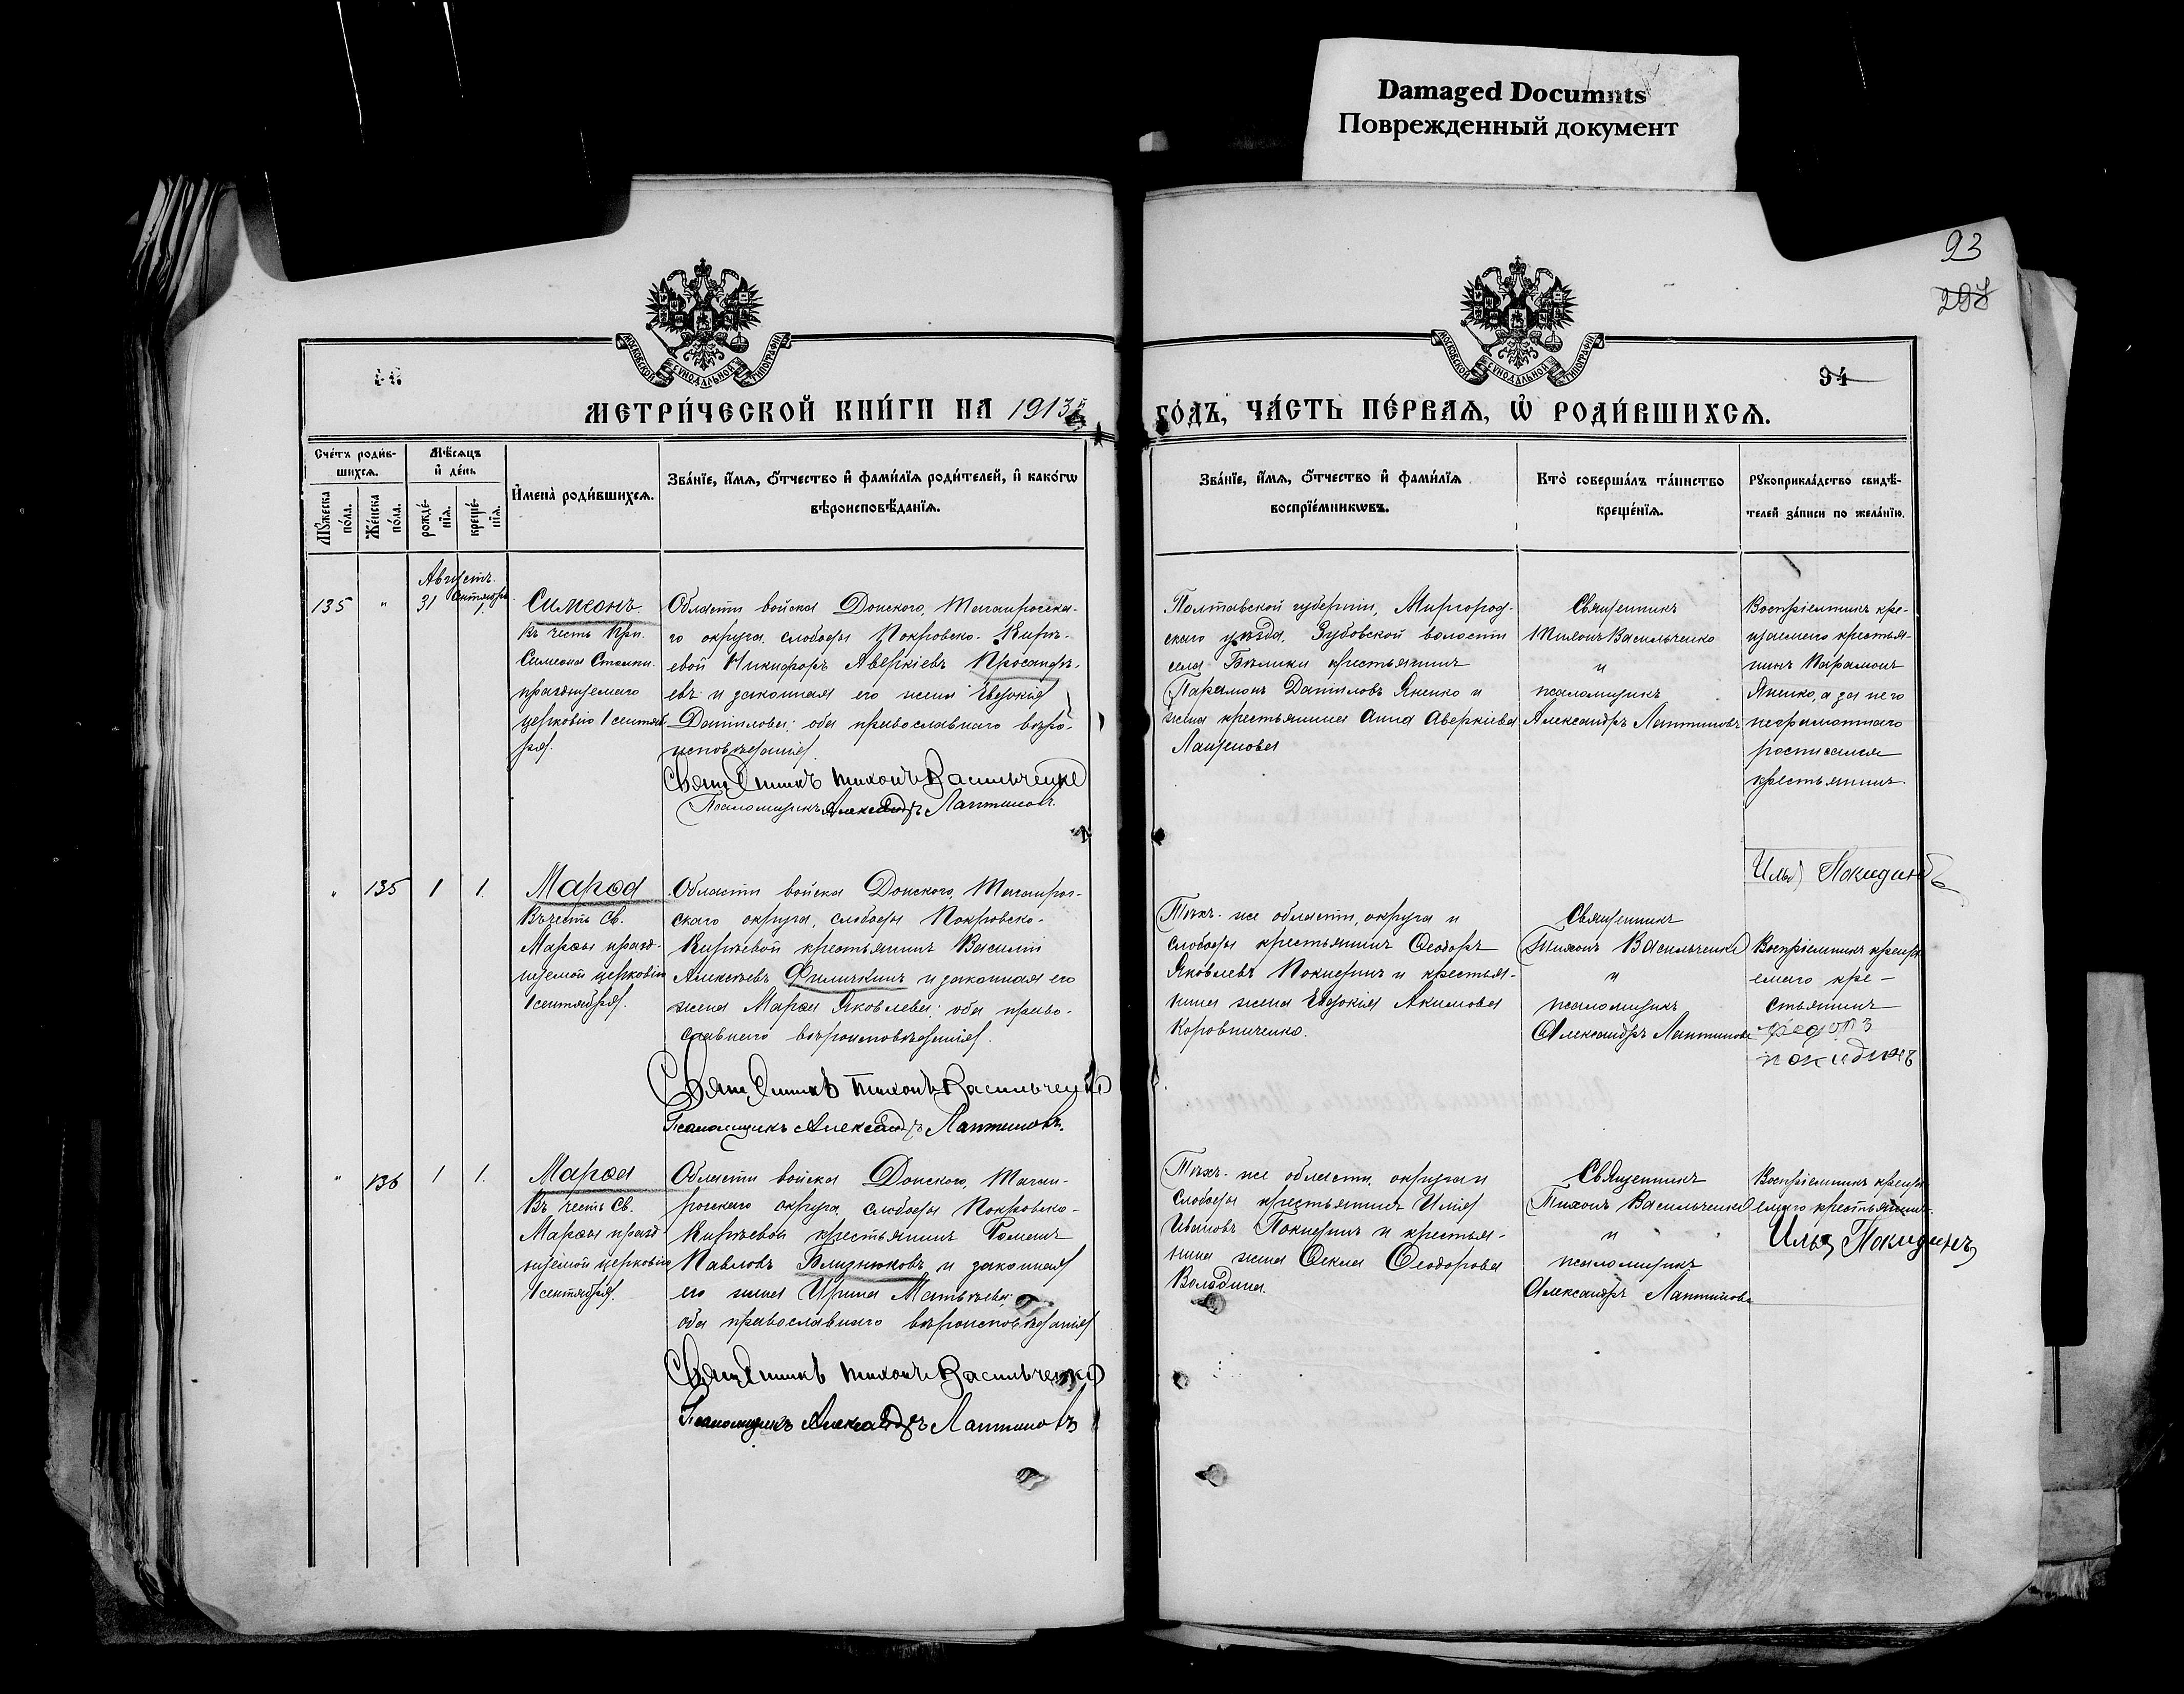 Damaged Documnts
Поврежденный документ
93
298
94
МЕТРИЧЕСКОЙ КНИГИ НА 1913й
ГОДЪ, ЧАСТЬ ПЕРВАЯ, Ѡ РОДИВШИХСЯ.
МОСКОВСКОЙ СѴНОДАЛЬНОЙ ТИПОГРАФІИ
МОСКОВСКОЙ СѴНОДАЛЬНОЙ ТИПОГРАФІИ
Счетъ родив-
шихся.
Мужеска
пола.
Женска
пола.
Мѣсяцъ
и день
рожде-
нія.
креще-
нія.
Имена родившихся.
Званіе, имя, отчество и фамилія родителей, и какогѡ
вѣроисповѣданія.
Званіе, имя, отчество и фамилія
воспріемникѡвъ.
Кто совершалъ таинство
крещенія.
Рукоприкладство свидѣ-
телей записи по желанію.
Августъ.
135 " 31 Сентября 1.
Симеонъ
въ честь прп.
Симеона Столпн.
празднуемаго
церковію 1 сентяб-
ря.
Области войска Донского, Таганрогска-
го округа, слободы Покровско-Кирѣ-
евой Никифоръ Аверкіевъ
евъ и законная его жена Евдокія
Данілова; оба православнаго вѣро-
исповѣданія.
Священникъ Тихонъ Васильченко
Псаломщикъ Александръ Лаптиновъ
Полтавской губерніи, Миргород-
скаго уѣзда, Зубовской волости
села Бѣлики крестьянинъ
Парамонъ Даніиловъ Яненко и
жена крестьянина Анна Аверкіева
Лащенова
Священникъ
Тихонъ Васильченко
и
псаломщикъ
Александръ Лаптиновъ
Воспріемникъ кре-
щаемаго крестья-
нинъ Парамонъ
Яненко, а за него
неграмотнаго
росписался
крестьянинъ
Илья Покидинъ
" 135 1 1.
Марѳа
Въ честь Св.
Марѳы празд-
нуемой церковію
1 сентября.
Области войска Донского, Таганрог-
скаго округа, слободы Покровско-
Кирѣевой крестьянинъ Василій
Алексѣевъ Филичкинъ и законная его
жена Марѳа Яковлева; оба право-
славнаго вѣроисповѣданія.
Священникъ Тихонъ Васильченко
Псаломщикъ Александръ Лаптиновъ.
Тѣхъ-же области, округа и
слободы крестьянинъ Ѳеодоръ
Яковлевъ Покидинъ и крестья-
нина жена Евдокія Акимова
Коровниченко.
Священникъ
Тихонъ Васильченко
и
псаломщикъ
Александръ Лаптиновъ
Воспріемникъ креща-
емаго кре-
стьянинъ
Федоръ
покидинъ
" 136 1 1.
Марѳа
Въ честь Св.
Марѳы празд-
нуемой церковію
1 сентября.
Области войска Донского, Таган-
рогскаго округа, слободы Покровско-
Кирѣевой крестьянинъ Романъ
Павловъ Близнюковъ и законная
его жена Ирина Матвѣева;
оба православнаго вѣроисповѣданія
Священникъ Тихонъ Васильченко
Псаломщикъ Александръ Лаптиновъ
Тѣхъ-же области, округа и
слободы крестьянинъ Илія
Ивановъ Покидинъ и крестья-
нина жена Ѳекла Ѳеодорова
Володина.
Священникъ
Тихонъ Васильченко
и
псаломщикъ
Александръ Лаптиновъ
Воспріемникъ креща-
емаго крестьянинъ
Илья Покидинъ